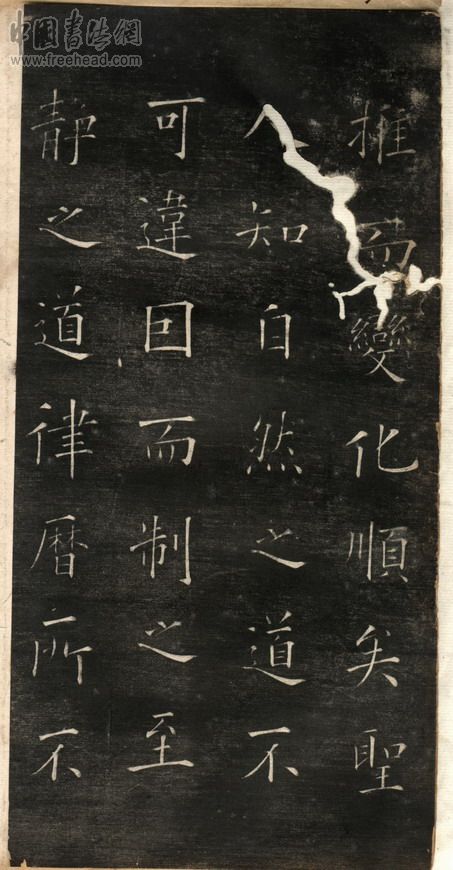 中國書法網
www.freehead.com
推而變化順矣聖
人知自然之道不
可違囙而制之至
靜之道律暦所不